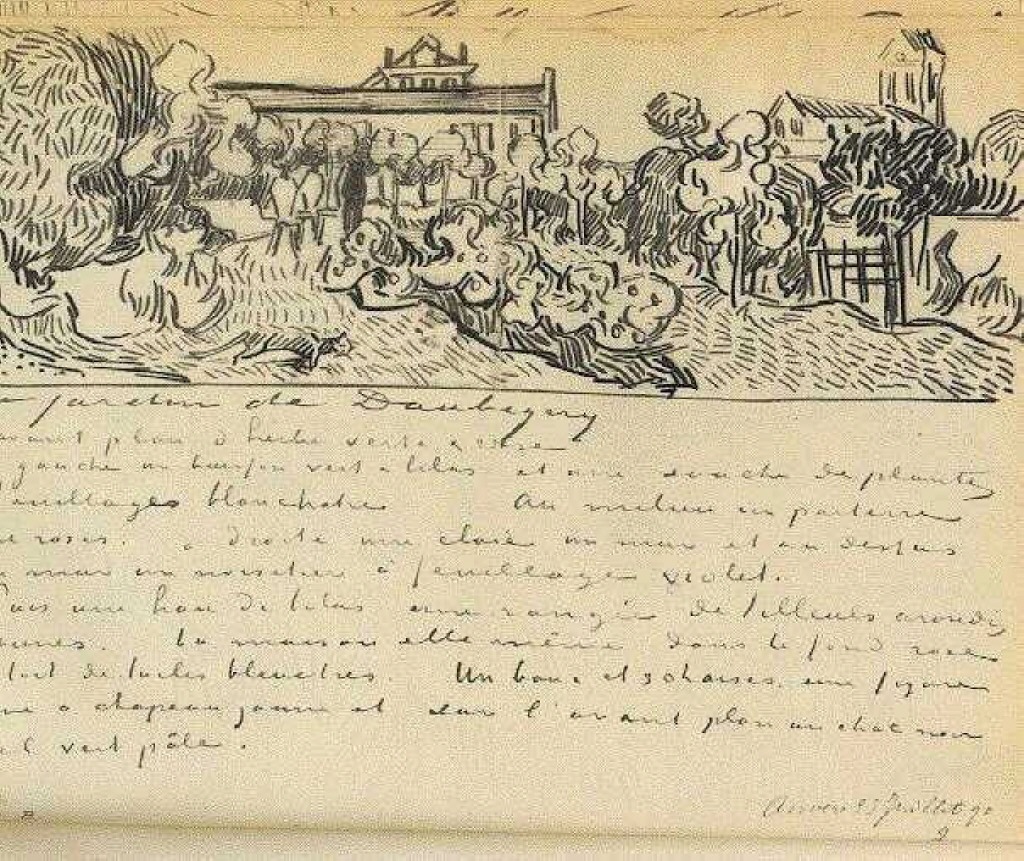 jardin de Daubigny
avant plan d'herbe verte & rose
gauche un buisson vert & lilas et une souche de plantes
feuillages blanchatres Au milieu un parterre
de roses. à droite une claie un mur et au dessus
mur un noisetier à feuillage violet.
Puis une haie de lilas une rangée de tilleuls arrondis
jaunes. La maison elle même dans le fond rose
toit de tuiles bleuatres. Un banc et 3 chaises une figure
à chapeau jaune et sur l'avant plan un chat noir
vert pâle.
Auvers 23 Juillet 90